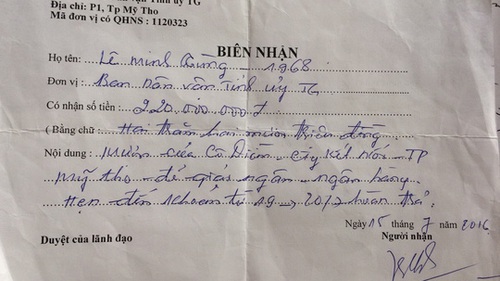 Dân vận Tỉnh ủy TG
Địa chỉ: P1, Tp Mỹ Tho
Mã đơn vị có QHNS : 1120323
BIÊN NHẬN
Họ tên: Lê minh Hùng - 1968
Đơn vị : Ban Dân vận Tỉnh ủy TG
Có nhận số tiền : 220.000.000đ
( Bằng chữ : Hai trăm hai mươi triệu đồng
Nội dung : mượn của Cô Diễm - TP
mỹ tho - để giao ngân - ngân hàng
Hẹn đến khoản từ 19 → 20/7 hoàn trả.
Ngày 15 tháng 7 năm 2016
Duyệt của lãnh đạo
Người nhận